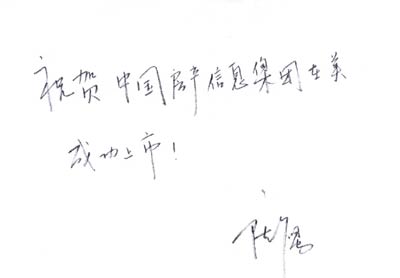 祝贺中国房产信息集团在美
成功上市！